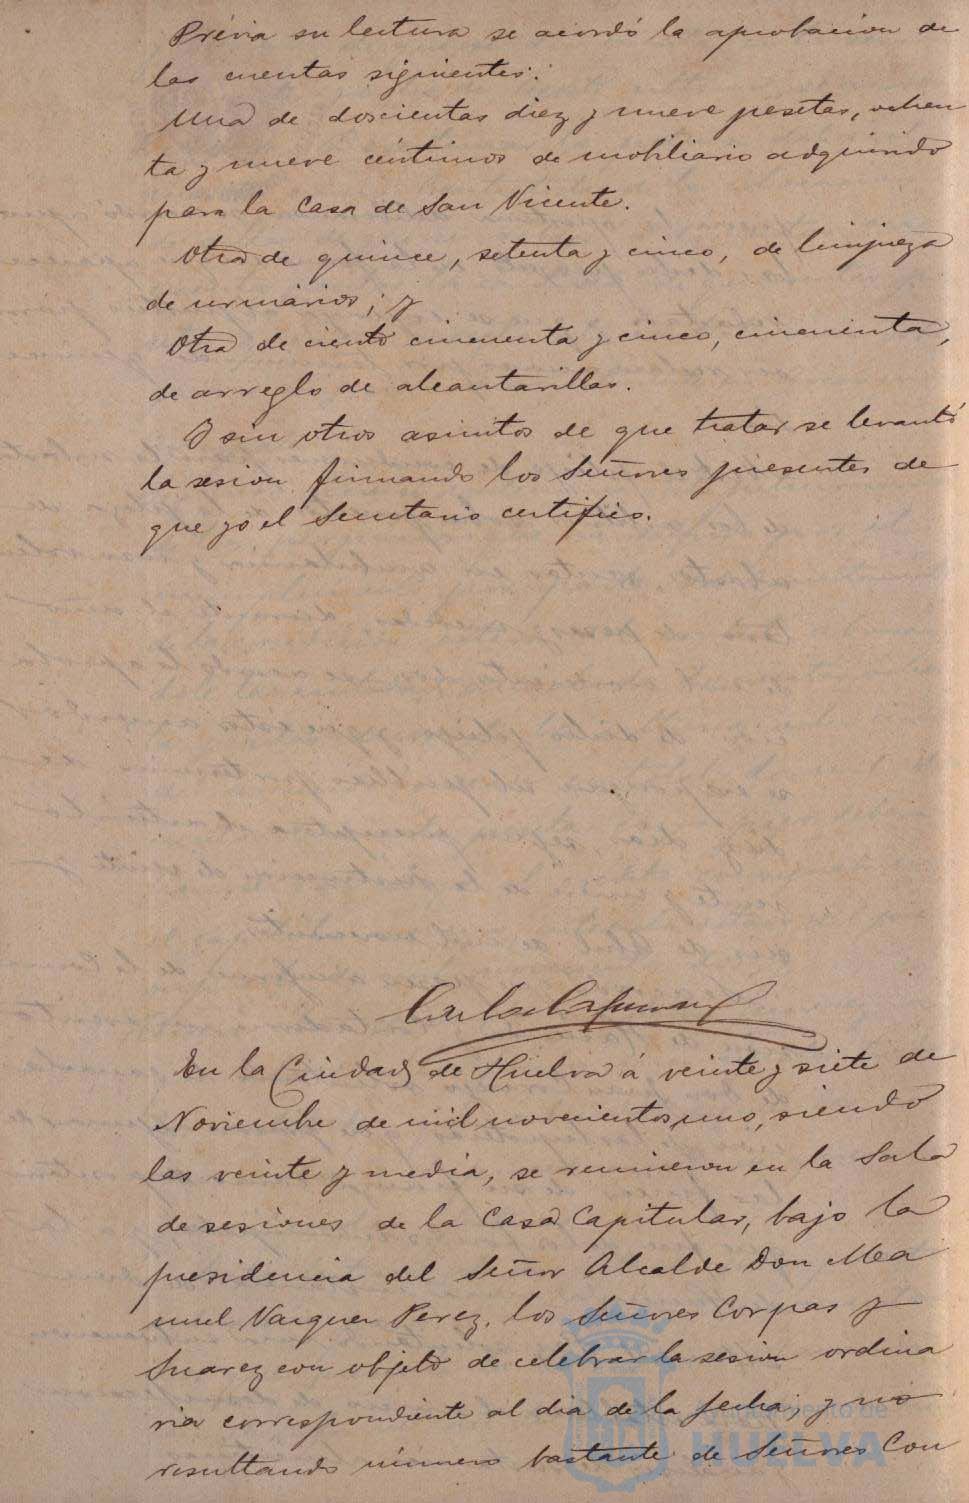 Prévia su lectura se acordó la aprobacion de
las cuentas siguientes:
Una de doscientas diez y nueve pesetas, ochen
ta y nueve céntimos de mobiliario adquirido
para la Casa de San Vicente.
Otra de quince, setenta y cinco, de limpieza
de urinarios; y
Otra de ciento cincuenta y cinco, cincuenta,
de arreglo de alcantarillas.
Y sin otros asuntos de que tratar se levantó
la sesion firmando los Señores presentes de
que yo el Secretario certifico.
En la Ciudad de Huelva á veinte y siete de
Noviembre de mil novecientos uno, siendo
las veinte y media, se reunieron en la Sala
de sesiones de la Casa Capitular, bajo la
presidencia del Señor Alcalde Don Ma
nuel Vazquez Perez, los Señores Corpas y
Suarez con objeto de celebrar la sesion ordina
ria correspondiente al dia de la fecha; y no
resultando número bastante de Señores Con
Ayuntamiento de
HUELVA